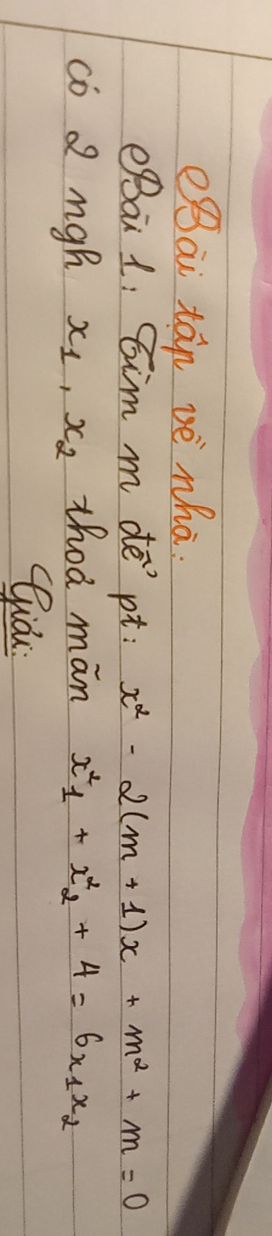 Bài tập về nhà:
Bài 1: Tìm m để pt: x² - 2(m + 1)x + m² + m = 0
có 2 ngh x₁, x₂ thoả mãn x²₁ + x²₂ + 4 = 6x₁x₂
Giải: